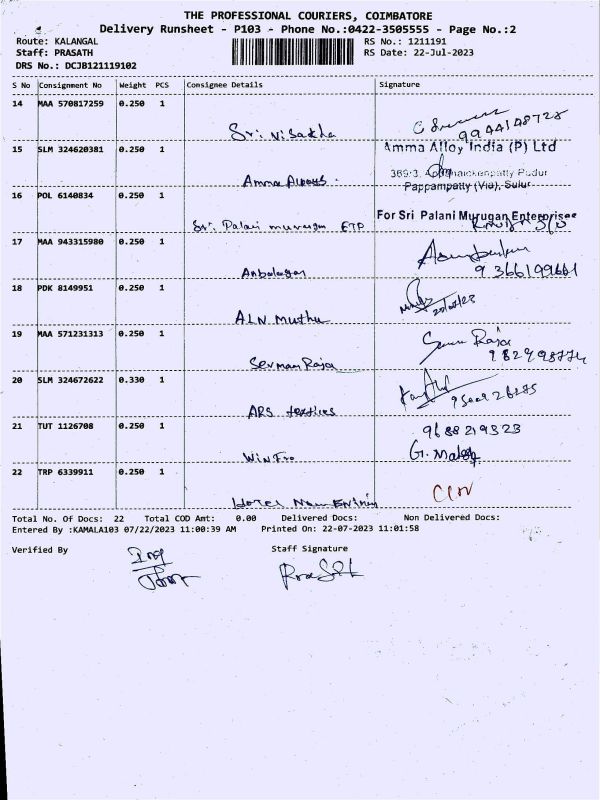 THE PROFESSIONAL COURIERS, COIMBATORE
Delivery Runsheet - P103 - Phone No.:0422-3505555 - Page No.:2
Route: KALANGAL RS No.: 1211191
Staff: PRASATH RS Date: 22-Jul-2023
DRS No.: DCJB121119102
S No Consignment No Weight PCS Consignee Details Signature
14 MAA 570817259 0.250 1
Sri Visakha 9944148728
15 SLM 324620381 0.250 1 Amma Alloy India (P) Ltd
369/3, Pudur
Amma Alloys Pappampatty (Via), Sulur
16 POL 6140834 0.250 1 For Sri Palani Murugan Enterprises
Sri Palani murugan ETP
17 MAA 943315980 0.250 1
Anbalagan 9366199661
18 PDK 8149951 0.250 1
ALN Muthu
19 MAA 571231313 0.250 1
Raja
Serman Raja
20 SLM 324672622 0.330 1
ARS textiles
21 TUT 1126708 0.250 1 9688219323
G.
22 TRP 6339911 0.250 1
Hotel
Total No. Of Docs: 22 Total COD Amt: 0.00 Delivered Docs: Non Delivered Docs:
Entered By :KAMALA103 07/22/2023 11:00:39 AM Printed On: 22-07-2023 11:01:58
Verified By Staff Signature